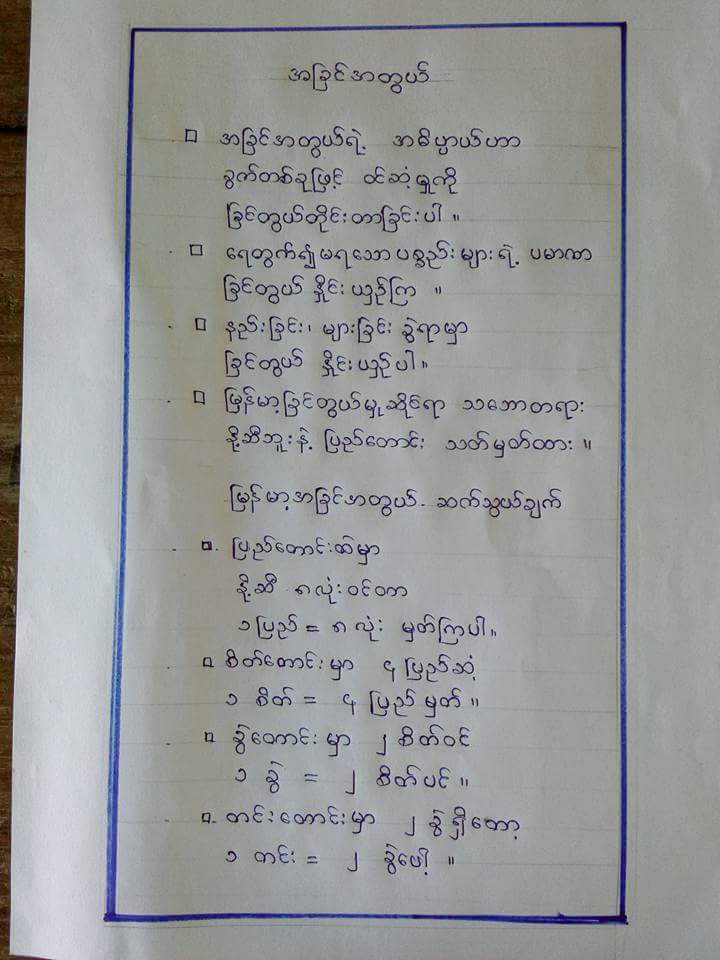 အခြင်အတွယ်
အခြင်အတွယ်ရဲ့ အဓိပ္ပာယ်ဟာ
ခွက်တစ်ခုဖြင့် ဝင်ဆံ့မှုကို
ခြင်တွယ်တိုင်းတာခြင်းပါ ။
ရေတွက်၍မရသောပစ္စည်းများရဲ့ ပမာဏ
ခြင်တွယ် နှိုင်းယှဉ်ကြ ။
နည်းခြင်း၊ များခြင်း ခွဲရာမှာ
ခြင်တွယ် နှိုင်းယှဉ်ပါ ။
မြန်မာ့ခြင်တွယ်မှုဆိုင်ရာ သဘောတရား
နို့ဆီဘူးနဲ့ ပြည်တောင်း သတ်မှတ်ထား ။
မြန်မာ့အခြင်အတွယ် - ဆက်သွယ်ချက်
ပြည်တောင်းထဲမှာ
နို့ဆီ ၈လုံးဝင်တာ
၁ပြည် = ၈လုံး မှတ်ကြပါ ။
စိတ်တောင်းမှာ ၄ ပြည်ဆံ့
၁ စိတ် = ၄ ပြည်မှတ် ။
ခွဲတောင်းမှာ ၂ စိတ်ဝင်
၁ ခွဲ = ၂ စိတ်ပင် ။
တင်းတောင်းမှာ ၂ ခွဲရှိတော့
၁ တင်း = ၂ ခွဲပေါ့ ။